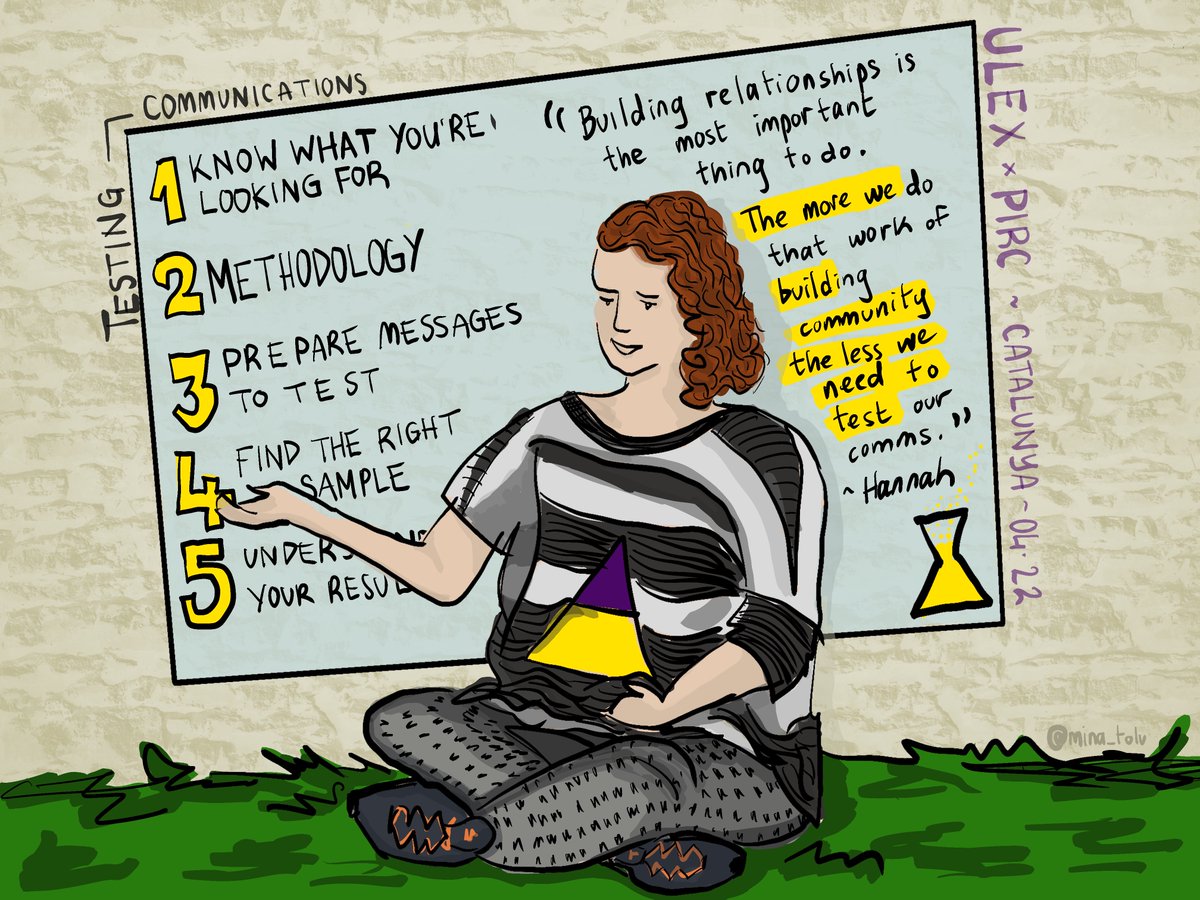 TESTING
COMMUNICATIONS
1 KNOW WHAT YOU'RE
LOOKING FOR
2 METHODOLOGY
3 PREPARE MESSAGES
TO TEST
4 FIND THE RIGHT
SAMPLE
5
YOUR
"Building relationships is
the most important
thing to do.
The more we do
that work of
building
community
the less we
need to
test our
comms."
~ Hannah
ULEX x PIRC ~ CATALUNYA - 04.22
@mina_tolu